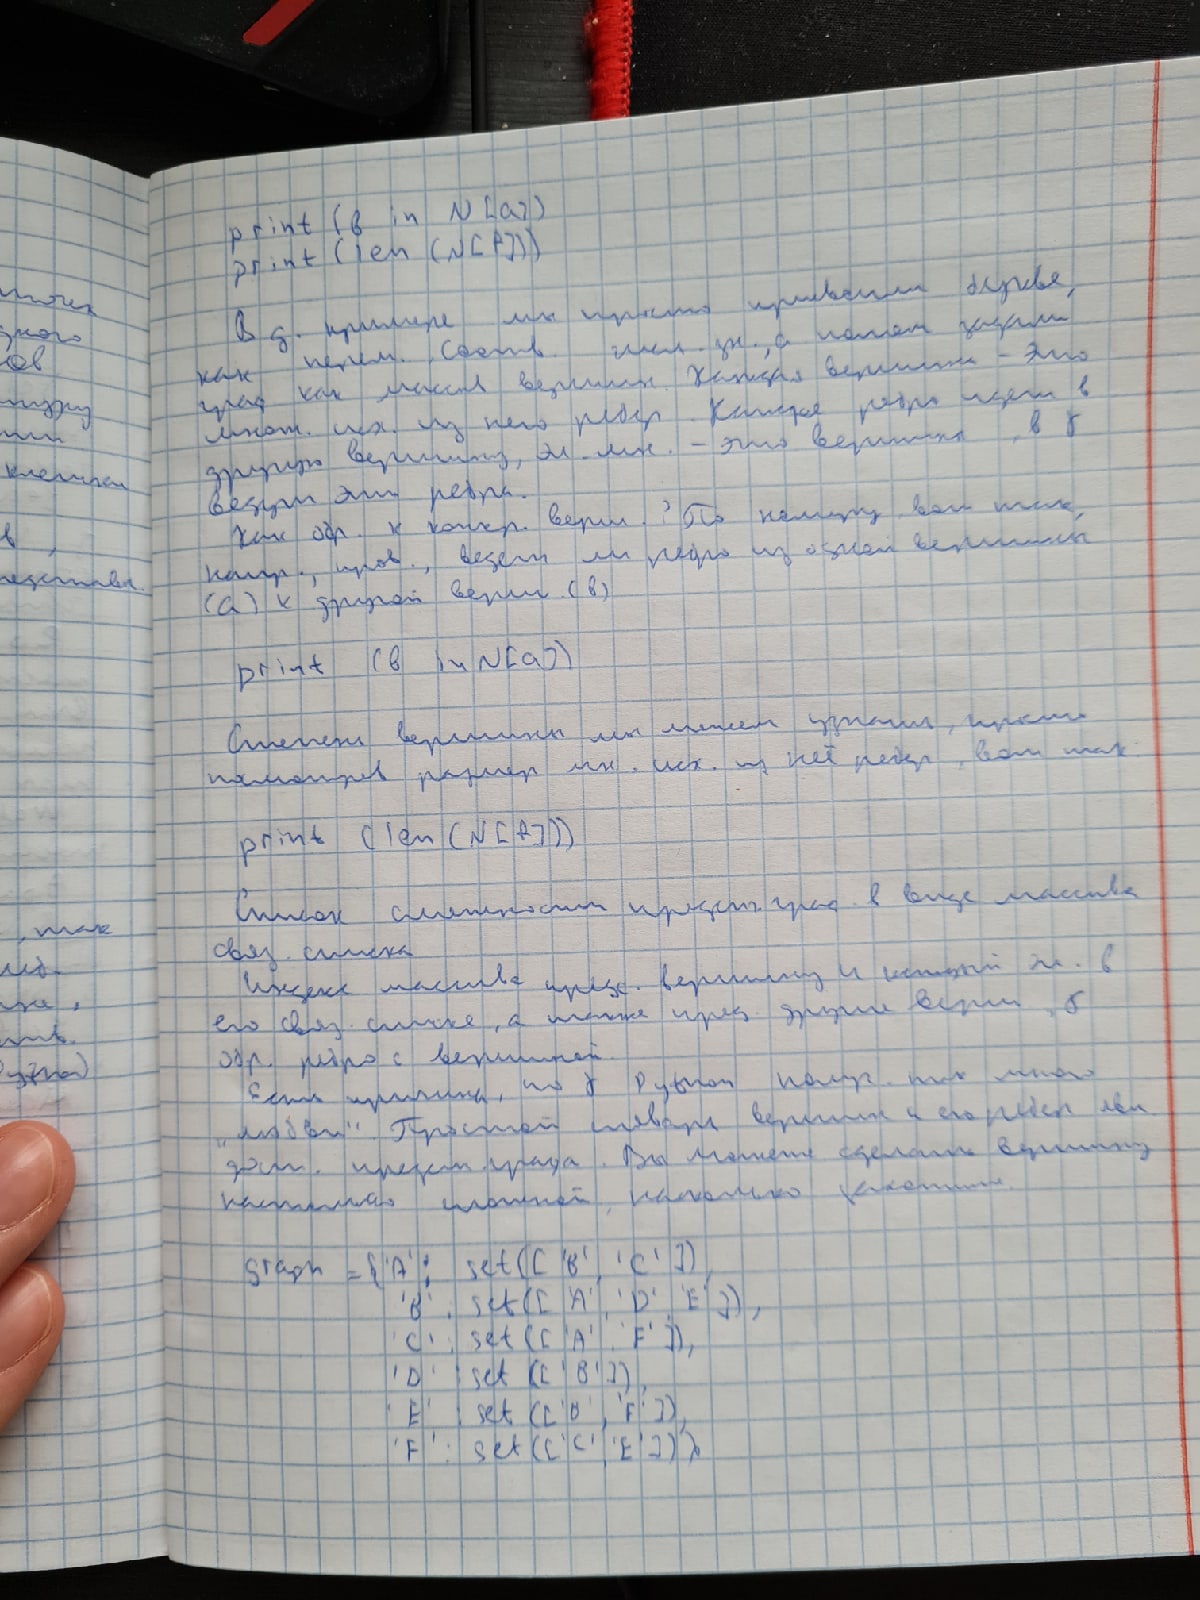 print (b in N[a])
print (len (N[f]))
В д. примере мы просто присвоили букве,
как перем. соотв. числ. зн., а потом задали
граф как массив вершин. Каждая вершина - это
множ. исх. из него ребер. Каждое ребро идет в
другую вершину, эл. мн. - это вершина, в
ведут эти ребра.
Как обр. к конкр. верш.? По номеру, вот так,
напр., пров., ведет ли ребро из одной вершины
(a) к другой верш. (b)
print (b in N[a])
Степень вершины мы можем узнать, просто
посмотрев размер мн. исх. из неё ребер, вот так
print (len (N[f]))
Список смежности предст. граф в виде массива
связ. списка
Индекс массива предс. вершину и каждый эл. в
его связ. списке, а также пред. другие верш.,
обр. ребро с вершиной.
Есть причина, по Python получ. так много
„любви". Простой словарь вершин и его ребер явл.
дост. предст. графа. Вы можете сделать вершину
настолько сложной, насколько захотите.
graph = {'A': set(['B', 'C']),
'B': set(['A', 'D', 'E']),
'C': set(['A', 'F']),
'D': set(['B']),
'E': set(['B', 'F']),
'F': set(['C', 'E'])}